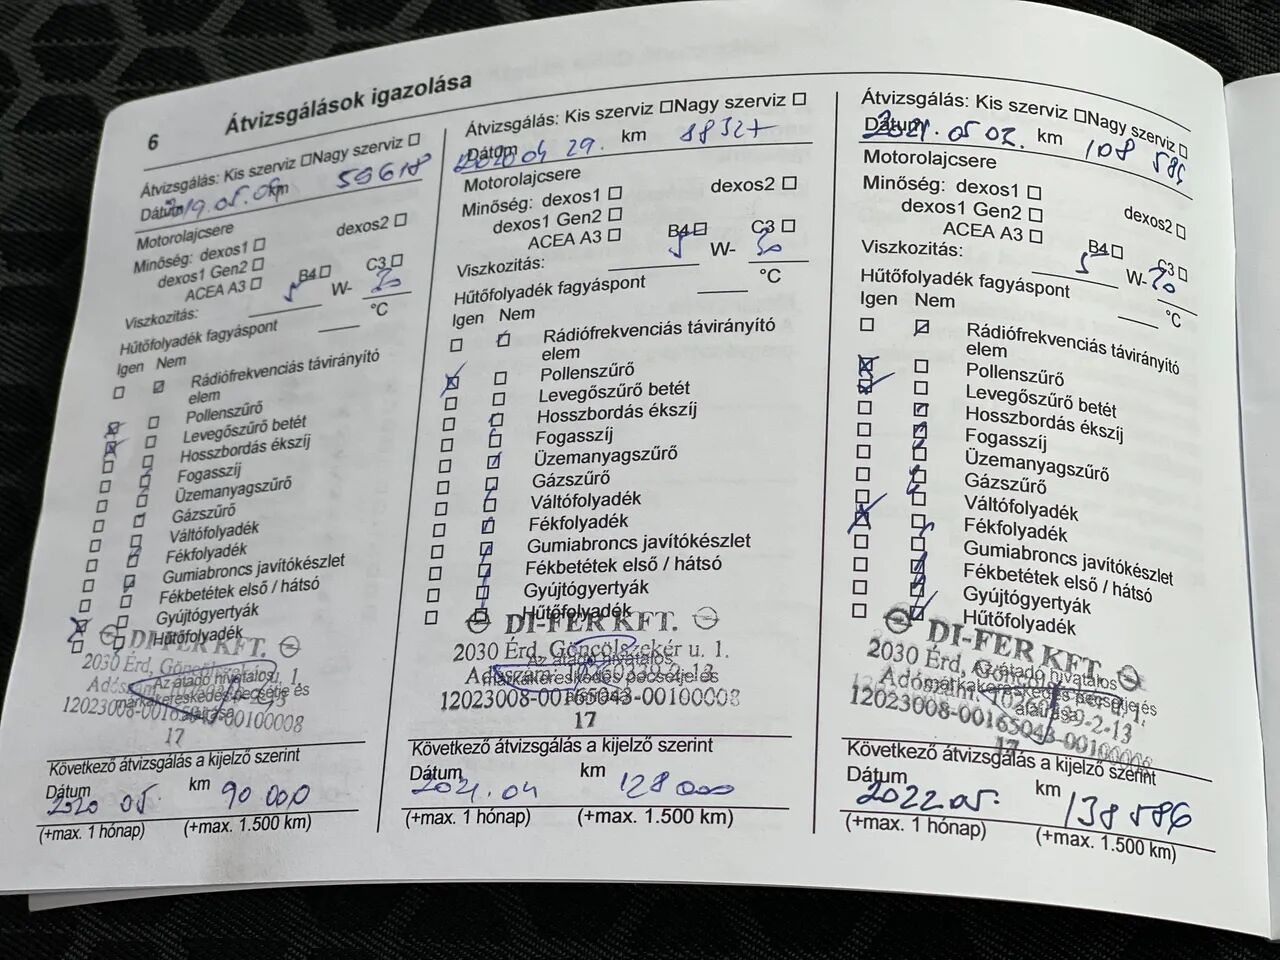 6 Átvizsgálások igazolása
Átvizsgálás: Kis szerviz Nagy szerviz
Dátum 2019.05.09. km 59618
Motorolajcsere
Minőség: dexos1 dexos2
dexos1 Gen2
ACEA A3 B4 C3
Viszkozitás: 5 W- 30
Hűtőfolyadék fagyáspont °C
Igen Nem
Rádiófrekvenciás távirányító
elem
Pollenszűrő
Levegőszűrő betét
Hosszbordás ékszíj
Fogasszíj
Üzemanyagszűrő
Gázszűrő
Váltófolyadék
Fékfolyadék
Gumiabroncs javítókészlet
Fékbetétek első / hátsó
Gyújtógyertyák
Hűtőfolyadék
DI-FER KFT.
2030 Érd, Göncölszekér u. 1.
Az átadó hivatalos
márkakereskedés pecsétje és
aláírása
12023008-00165043-00100008
17
Következő átvizsgálás a kijelző szerint
Dátum 2020 05. km 90 000
(+max. 1 hónap) (+max. 1.500 km)
Átvizsgálás: Kis szerviz Nagy szerviz
Dátum 2020 04 29. km 88327
Motorolajcsere
Minőség: dexos1 dexos2
dexos1 Gen2
ACEA A3 B4 C3
Viszkozitás: 5 W- 30
Hűtőfolyadék fagyáspont °C
Igen Nem
Rádiófrekvenciás távirányító
elem
Pollenszűrő
Levegőszűrő betét
Hosszbordás ékszíj
Fogasszíj
Üzemanyagszűrő
Gázszűrő
Váltófolyadék
Fékfolyadék
Gumiabroncs javítókészlet
Fékbetétek első / hátsó
Gyújtógyertyák
Hűtőfolyadék
DI-FER KFT.
2030 Érd, Göncölszekér u. 1.
Az átadó hivatalos
márkakereskedés pecsétje és
12023008-00165043-00100008
17
Következő átvizsgálás a kijelző szerint
Dátum 2021.04 km 128000
(+max. 1 hónap) (+max. 1.500 km)
Átvizsgálás: Kis szerviz Nagy szerviz
Dátum 2021.05 02. km 108 586
Motorolajcsere
Minőség: dexos1 dexos2
dexos1 Gen2
ACEA A3 B4 C3
Viszkozitás: 5 W- 30
Hűtőfolyadék fagyáspont °C
Igen Nem
Rádiófrekvenciás távirányító
elem
Pollenszűrő
Levegőszűrő betét
Hosszbordás ékszíj
Fogasszíj
Üzemanyagszűrő
Gázszűrő
Váltófolyadék
Fékfolyadék
Gumiabroncs javítókészlet
Fékbetétek első / hátsó
Gyújtógyertyák
Hűtőfolyadék
DI-FER KFT.
2030 Érd,
Az átadó hivatalos
márkakereskedés pecsétje és
aláírása
12023008-00165043-00100008
17
Következő átvizsgálás a kijelző szerint
Dátum 2022.05. km 138 586
(+max. 1 hónap) (+max. 1.500 km)